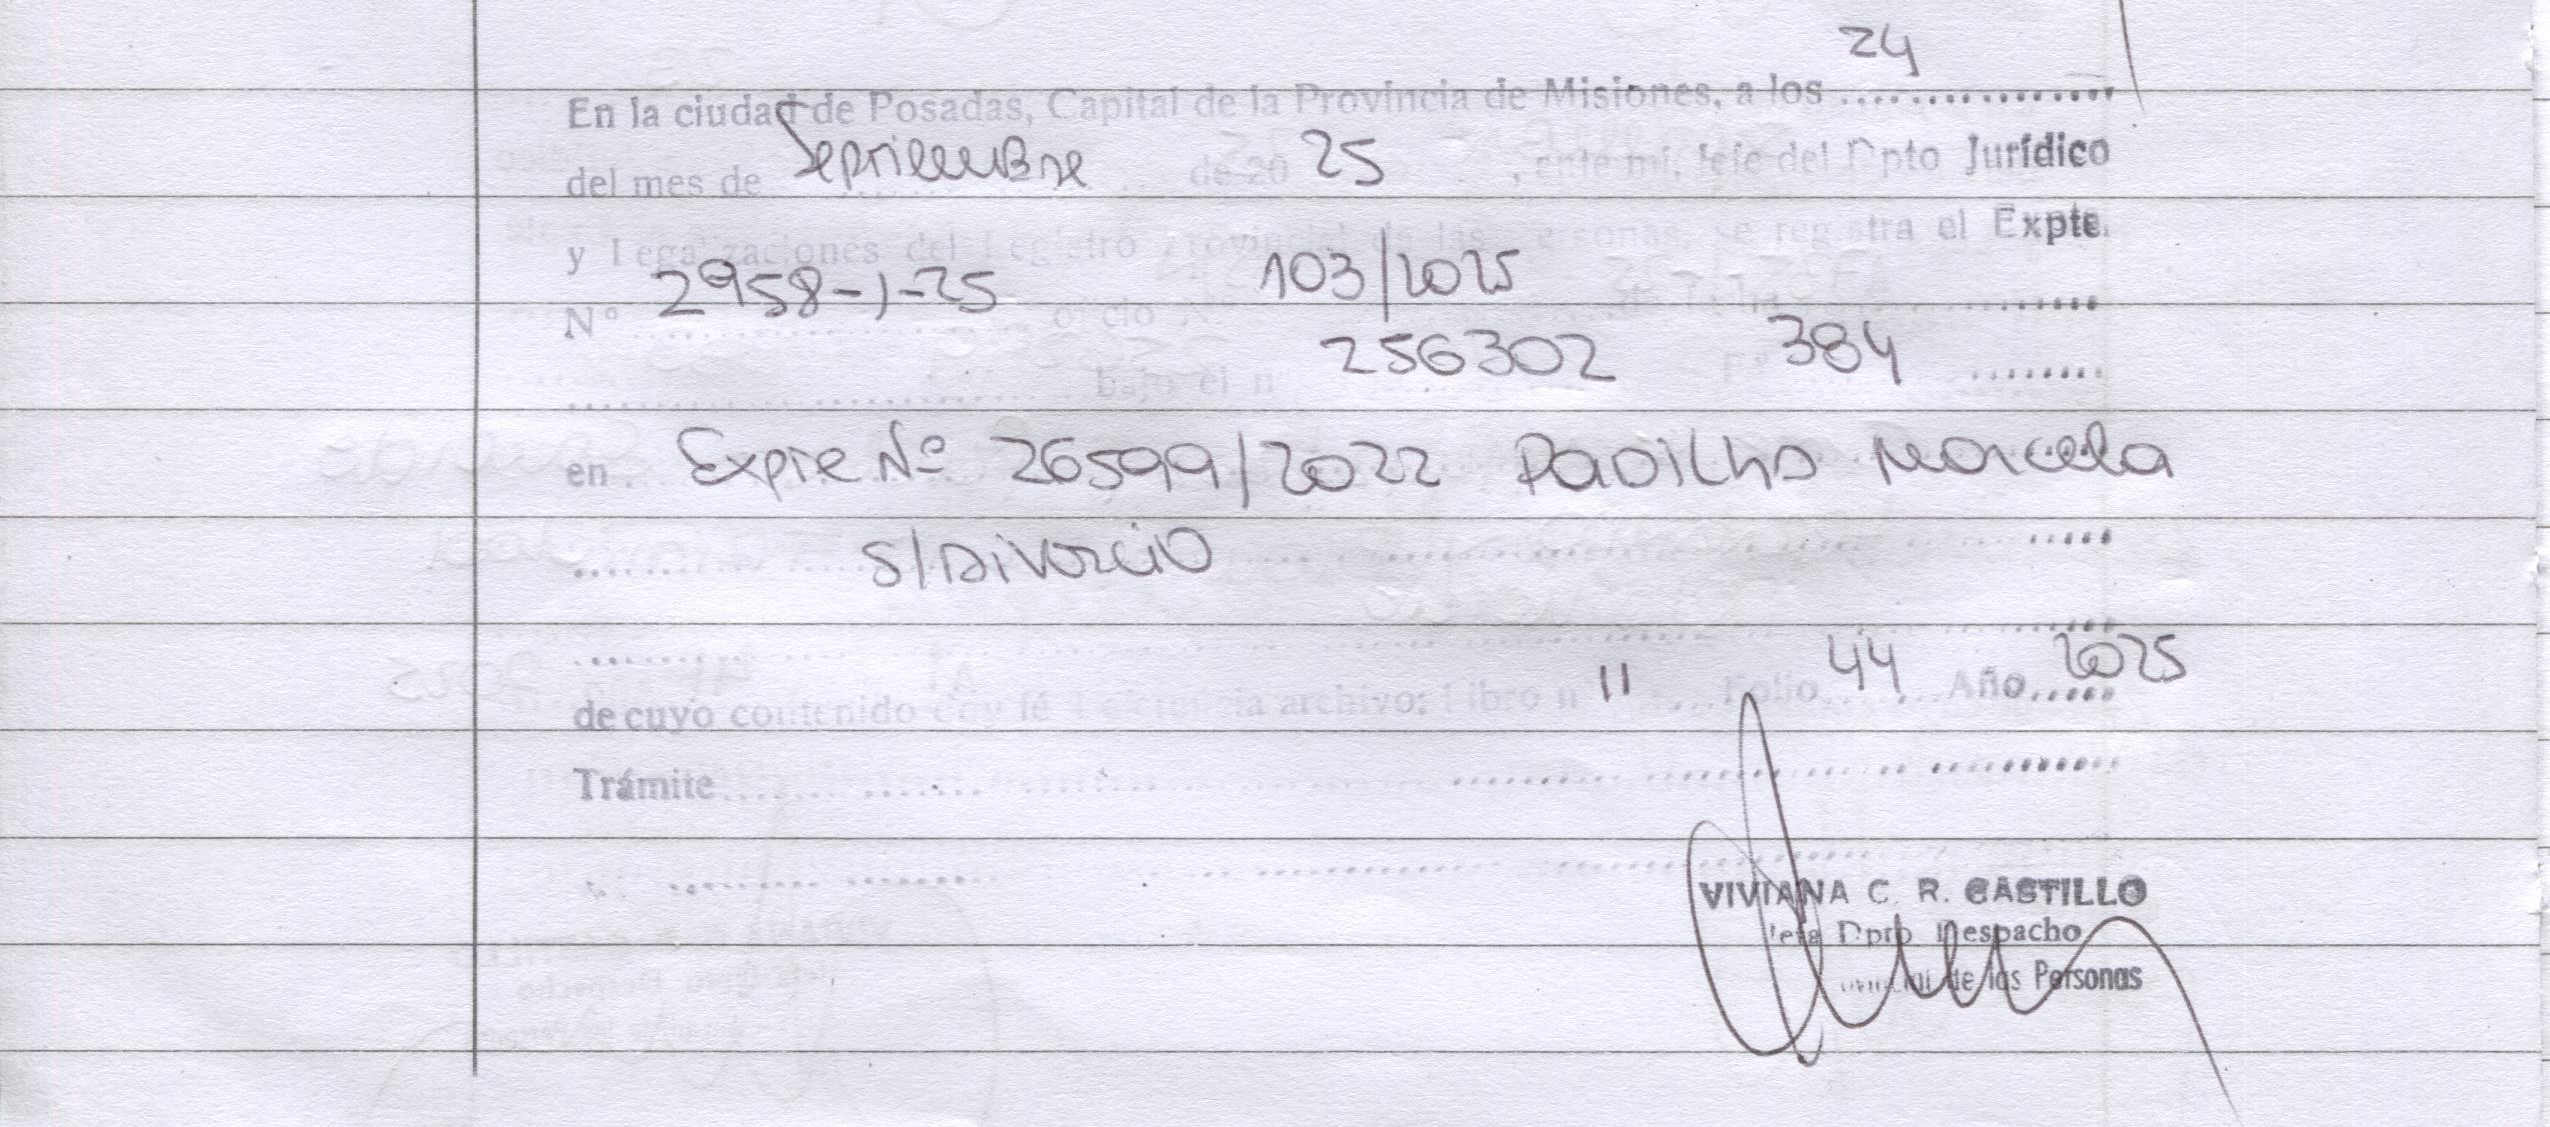 24
En la ciudad de Posadas, Capital de la Provincia de Misiones, a los ................
del mes de Septiembre de 20 25, ante mi, Jefe del Dpto Jurídico
y Legalizaciones del Registro Provincial de las Personas, se registra el Expte.
Nº 2958-J-25 oficio 103/2025
bajo el n 256302 Fº 384
en Expte Nº 26599/2022 Padilha Marcela
s/Divorcio
de cuyo contenido doy fé. Referencia archivo: Libro n 11 Folio 44 Año 2025
Trámite
VIVIANA C. R. CASTILLO
Jefa Dpto. Despacho
Provincial de las Personas